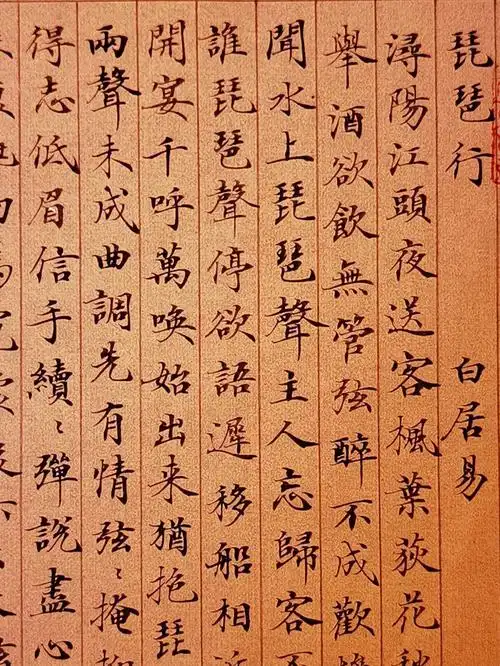 琵琶行 白居易
潯陽江頭夜送客楓葉荻花
舉酒欲飲無管弦醉不成歡
聞水上琵琶聲主人忘歸客不
誰琵琶聲停欲語遲移船相近
開宴千呼萬喚始出来猶抱琵
兩聲未成曲調先有情弦〻掩抑
得志低眉信手續〻彈說盡心